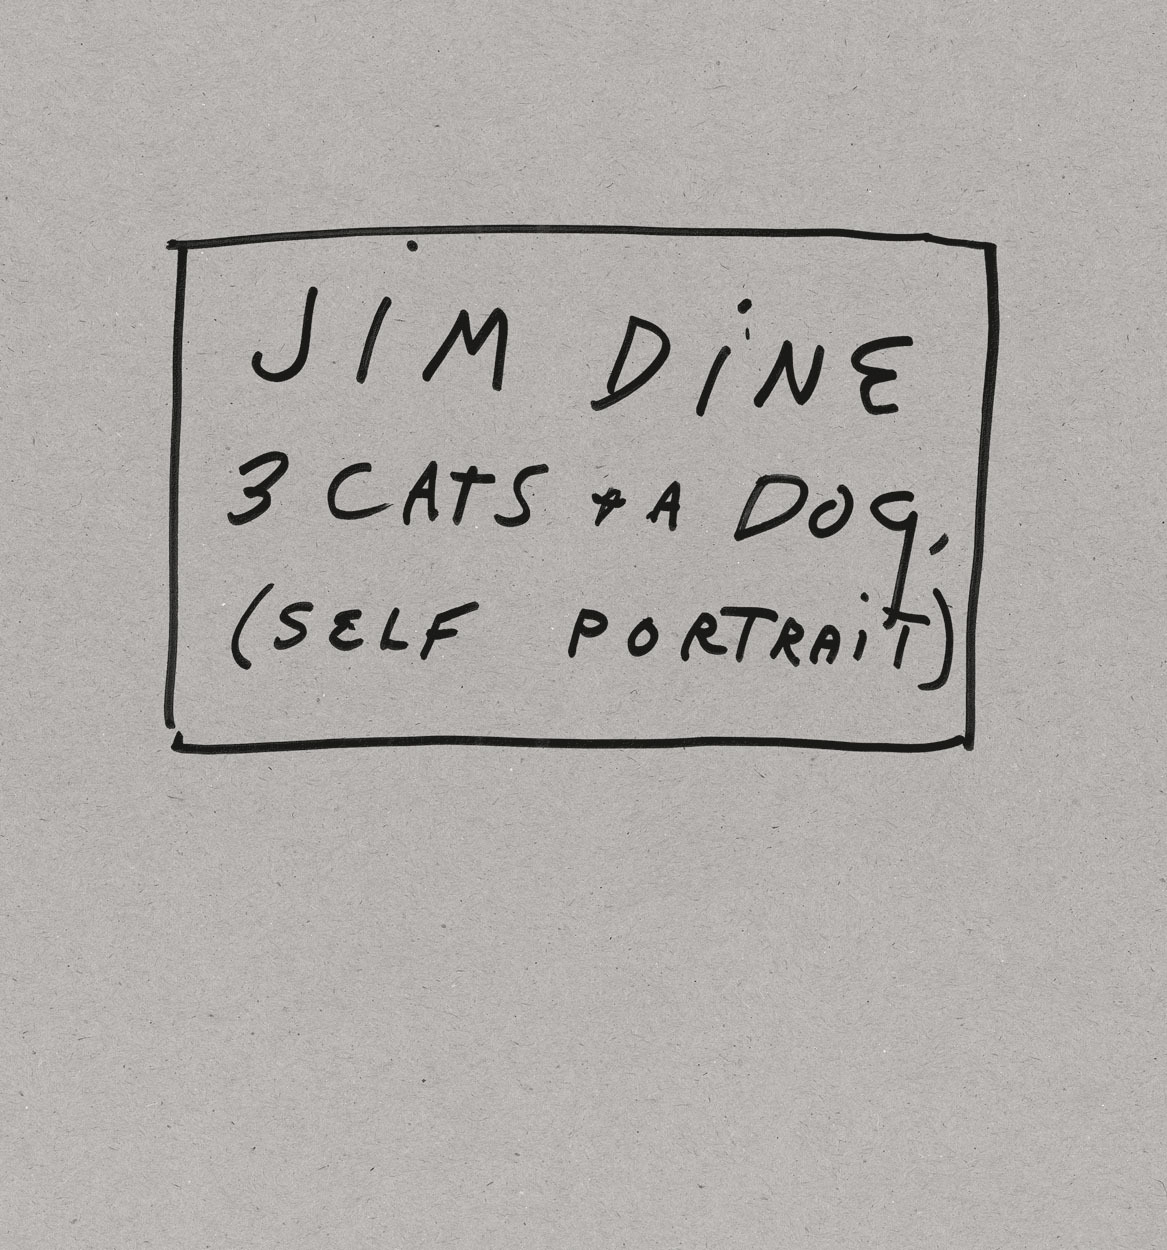 JIM DiNE
3 CATS & A DOg.
(SELF PORTRAiT)